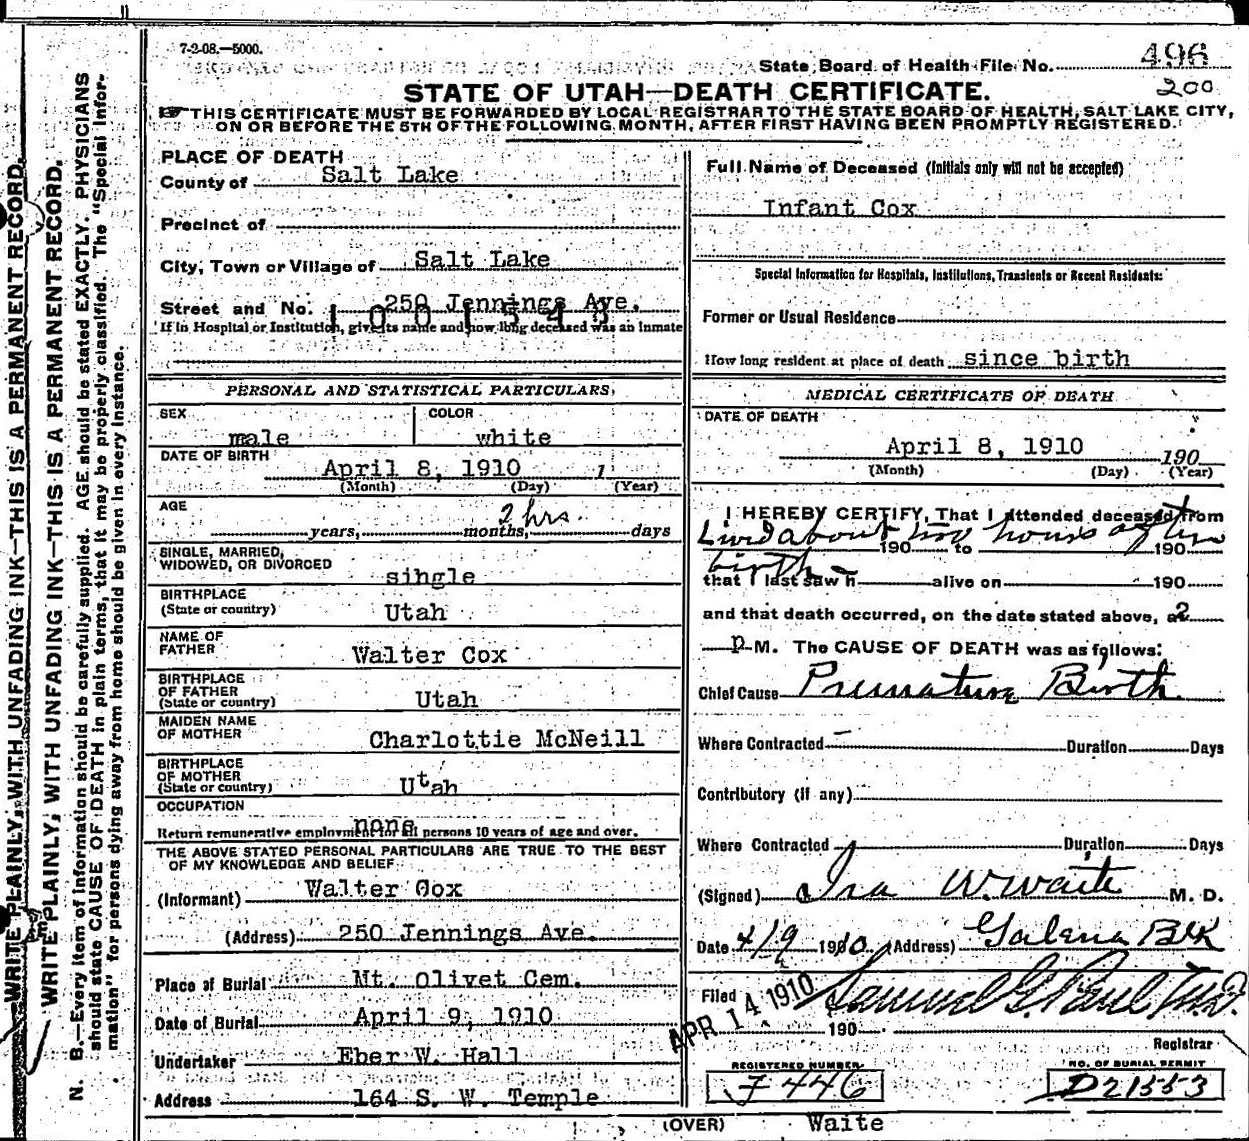 7-2-08.—5000.
State Board of Health File No. 496
200
STATE OF UTAH—DEATH CERTIFICATE.
☞ THIS CERTIFICATE MUST BE FORWARDED BY LOCAL REGISTRAR TO THE STATE BOARD OF HEALTH, SALT LAKE CITY,
ON OR BEFORE THE 5TH OF THE FOLLOWING MONTH, AFTER FIRST HAVING BEEN PROMPTLY REGISTERED.
PLACE OF DEATH
County of Salt Lake
Precinct of
City, Town or Village of Salt Lake
Street and No. 250 Jennings Ave.
If in Hospital or Institution, give its name and how long deceased was an inmate
PERSONAL AND STATISTICAL PARTICULARS.
SEX male COLOR white
DATE OF BIRTH April 8, 1910 1
(Month) (Day) (Year)
AGE 2 hrs.
years, months, days
SINGLE, MARRIED,
WIDOWED, OR DIVORCED single
BIRTHPLACE
(State or country) Utah
NAME OF
FATHER Walter Cox
BIRTHPLACE
OF FATHER
(State or country) Utah
MAIDEN NAME
OF MOTHER Charlottie McNeill
BIRTHPLACE
OF MOTHER
(State or country) Utah
OCCUPATION none
Return remunerative employment for all persons 10 years of age and over.
THE ABOVE STATED PERSONAL PARTICULARS ARE TRUE TO THE BEST
OF MY KNOWLEDGE AND BELIEF.
(Informant) Walter Cox
(Address) 250 Jennings Ave.
Place of Burial Mt. Olivet Cem.
Date of Burial April 9, 1910
Undertaker Eber W. Hall
Address 164 S. W. Temple
Full Name of Deceased (Initials only will not be accepted)
Infant Cox
Special Information for Hospitals, Institutions, Transients or Recent Residents:
Former or Usual Residence
How long resident at place of death since birth
MEDICAL CERTIFICATE OF DEATH
DATE OF DEATH
April 8, 1910 190
(Month) (Day) (Year)
I HEREBY CERTIFY, That I attended deceased from
Lived about two hours after
190 to 190
birth
that I last saw h alive on 190
and that death occurred, on the date stated above, at 2
P M. The CAUSE OF DEATH was as follows:
Chief Cause Premature Birth
Where Contracted Duration Days
Contributory (if any)
Where Contracted Duration Days
(Signed) Ira W. Waite M. D.
Date 4/9 1910 (Address) Galena Blk
Filed APR 14 1910 Samuel G. Paul M.D.
190
Registrar
REGISTERED NUMBER
F 446
NO. OF BURIAL PERMIT
D21553
(OVER) Waite
WRITE PLAINLY, WITH UNFADING INK—THIS IS A PERMANENT RECORD.
WRITE PLAINLY, WITH UNFADING INK—THIS IS A PERMANENT RECORD.
N. B.—Every item of information should be carefully supplied. AGE should be stated EXACTLY. PHYSICIANS
should state CAUSE OF DEATH in plain terms, that it may be properly classified. The "Special Infor-
mation" for persons dying away from home should be given in every instance.